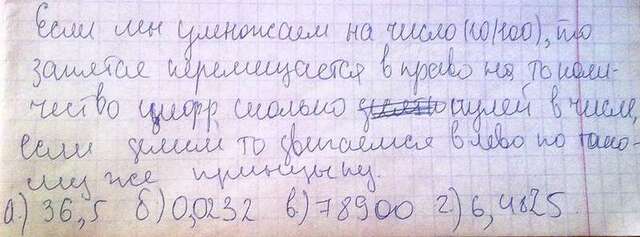 Если мы умножаем на число (10/100), то
запятая перемещается в право на то коли-
чество цифр, сколько нулей в числе,
если делим то двигаемся влево по тако-
му же принцыпу.
а) 36,5 б) 0,0232 в) 78900 г) 6,4825